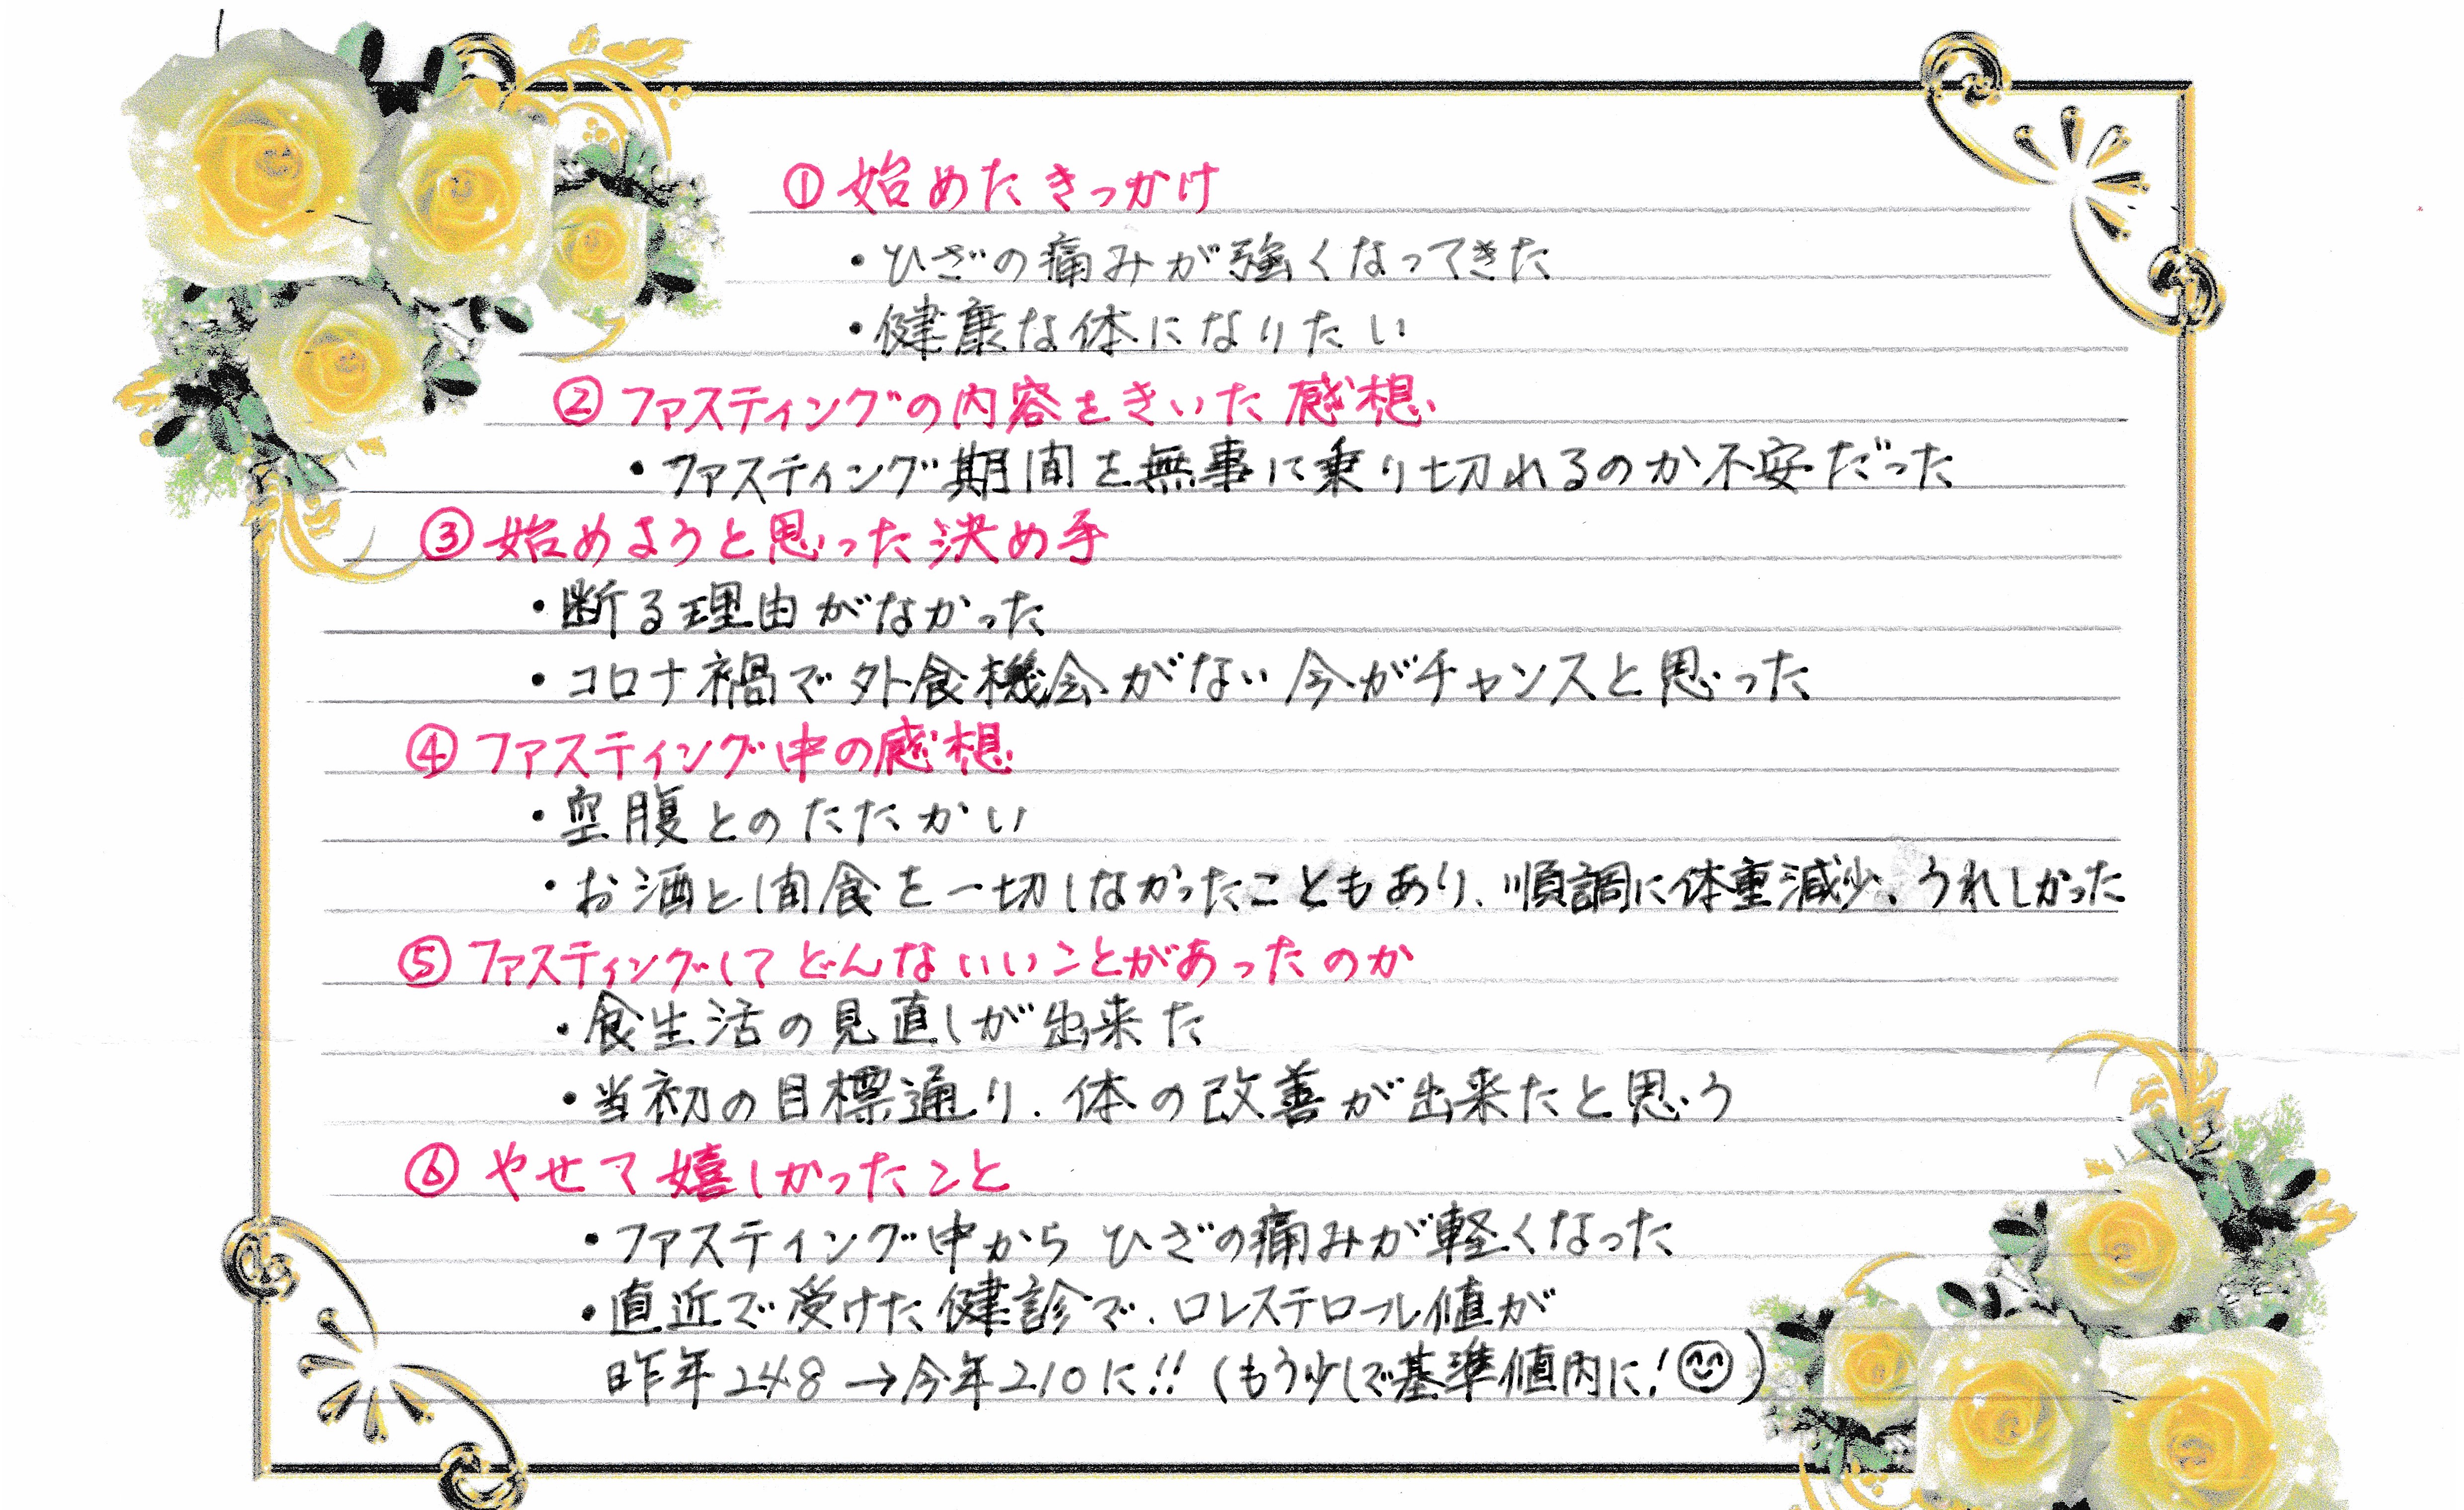 ① 始めたきっかけ
・ひざの痛みが強くなってきた
・健康な体になりたい
② ファスティングの内容をきいた感想
・ファスティング期間を無事に乗り切れるのか不安だった
③ 始めようと思った決め手
・断る理由がなかった
・コロナ禍で外食機会がない今がチャンスと思った
④ ファスティング中の感想
・空腹とのたたかい
・お酒と間食を一切しなかったこともあり、順調に体重減少、うれしかった
⑤ ファスティングしてどんないいことがあったのか
・食生活の見直しが出来た
・当初の目標通り、体の改善が出来たと思う
⑥ やせて嬉しかったこと
・ファスティング中からひざの痛みが軽くなった
・直近で受けた健診で、コレステロール値が
昨年248→今年210に!!(もう少しで基準値内に!😊)